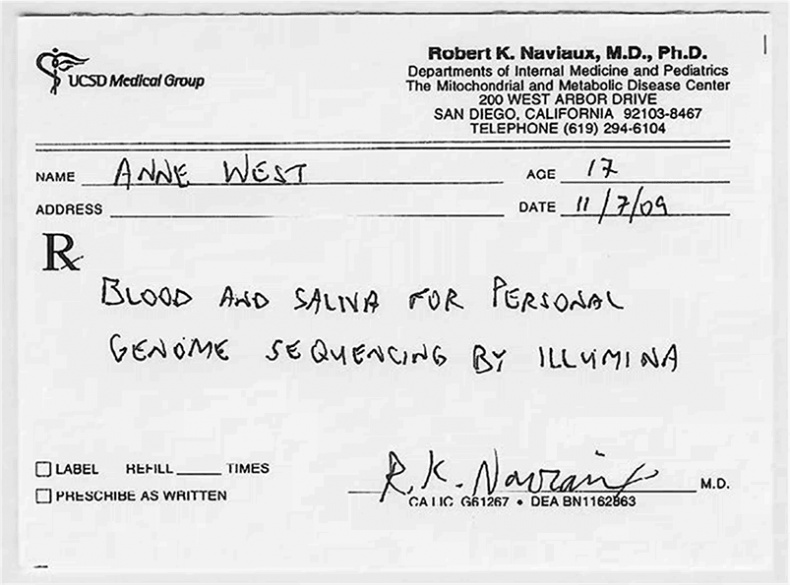 UCSD Medical Group
Robert K. Naviaux, M.D., Ph.D.
Departments of Internal Medicine and Pediatrics
The Mitochondrial and Metabolic Disease Center
200 WEST ARBOR DRIVE
SAN DIEGO, CALIFORNIA 92103-8467
TELEPHONE (619) 294-6104
NAME ANNE WEST AGE 17
ADDRESS DATE 11/7/09
Rx
BLOOD AND SALIVA FOR PERSONAL
GENOME SEQUENCING BY ILLUMINA
LABEL REFILL TIMES
PRESCRIBE AS WRITTEN
R.K. Naviaux M.D.
CA LIC G61267 • DEA BN1162863